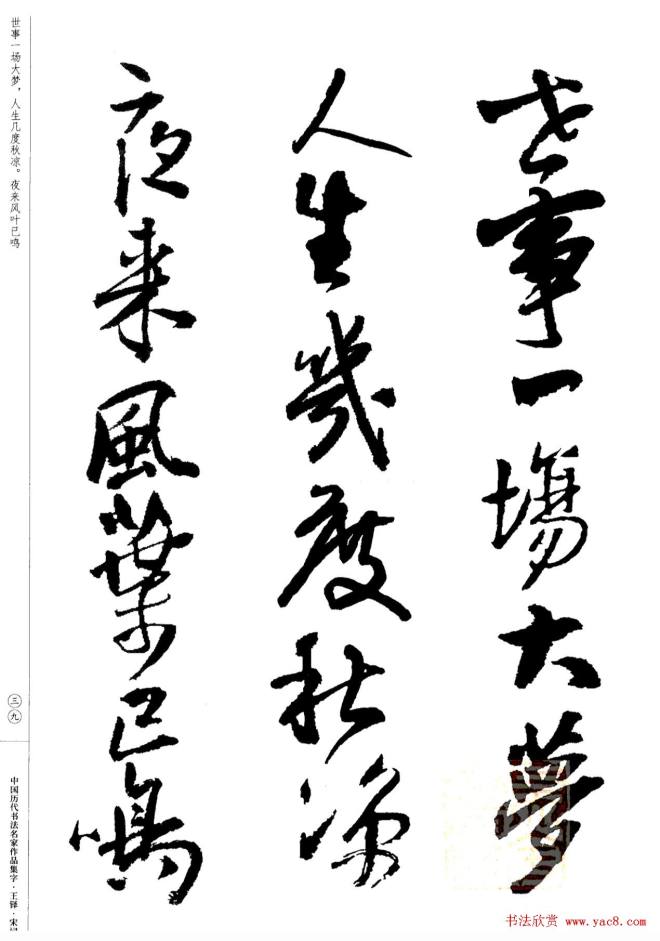 世事一場大夢
人生幾度秋涼
夜来風葉已鳴
世事一场大梦，人生几度秋凉。夜来风叶已鸣
三九
中国历代书法名家作品集字·王铎·宋词
书法欣赏 www.yac8.com